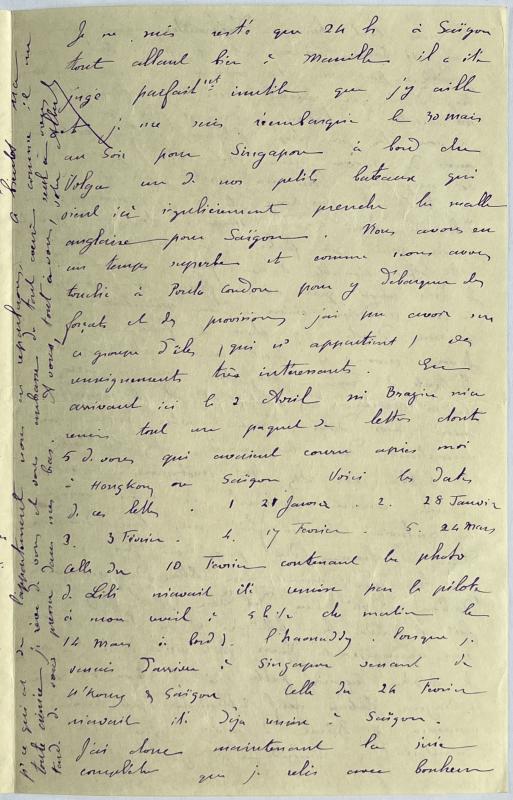 Je ne suis resté que 24 h à Saïgon
tout allant bien à Manille il a été
jugé parfait^nt inutile que j'y aille
et je me suis rembarqué le 30 mars
au soir pour Singapour à bord du
Volga un de nos petits bateaux qui
vient ici régulièrement prendre la malle
anglaise pour Saïgon. Nous avons eu
un temps superbe et comme nous avons
touché à Poulo Condor pour y débarquer des
forçats et des provisions j'ai pu avoir sur
ce groupe d'îles (qui ns appartient) des
renseignements très intéressants. En
arrivant ici le 2 Avril Mr m'a
remis tout un paquet de lettres dont
5 de vous qui avaient couru après moi
à Hongkong ou Saïgon. Voici les dates
de ces lettres. 1. 21 Janvier. 2. 28 Janvier
3. 3 Février. 4. 17 Février. 5. 24 Mars
Celle du 10 Février contenant la photo
de Lili m'avait été remise par le pilote
à mon réveil à 5 h ½ du matin le
14 mars à bord de l' lorsque je
venais d'arriver à Singapour venant de
H'Kong & Saïgon. Celle du 24 Février
m'avait été déjà remise à Saïgon.
J'ai donc maintenant la série
complète que je relis avec bonheur
p' ce qui est de l'appartement nous en reparlerons. à bientôt ma
toute aimée je rêve de vous et vous embrasse de tout cœur comme il me
tarde de vous presser dans mes bras. A vous, tout à vous, rien qu'à vous
votre Albert